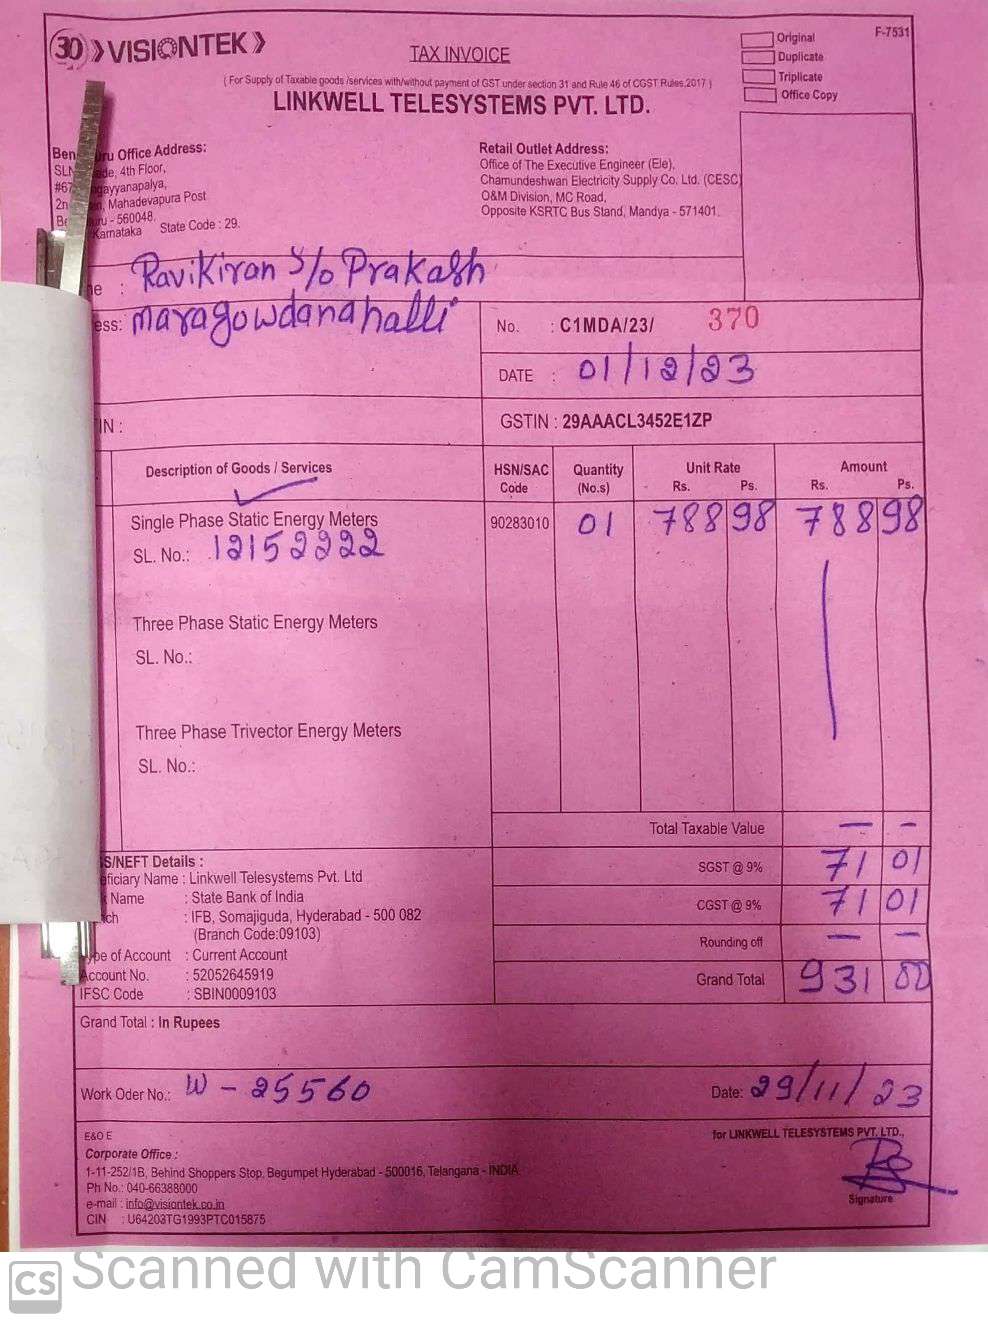 30 VISIONTEK
TAX INVOICE
Original
F-7531
Duplicate
Triplicate
Office Copy
( For Supply of Taxable goods /services with/without payment of GST under section 31 and Rule 46 of CGST Rules,2017 )
LINKWELL TELESYSTEMS PVT. LTD.
Office Address:
4th Floor,
Mahadevapura Post
- 560048.
Karnataka State Code : 29.
Retail Outlet Address:
Office of The Executive Engineer (Ele),
Chamundeshwari Electricity Supply Co. Ltd. (CESC)
O&M Division, MC Road,
Opposite KSRTC Bus Stand, Mandya - 571401.
: Ravikiran S/o Prakash
maragowdanahalli
No. : C1MDA/23/ 370
DATE : 01/12/23
GSTIN : 29AAACL3452E1ZP
Description of Goods / Services
HSN/SAC Code
Quantity (No.s)
Unit Rate Rs. Ps.
Amount Rs. Ps.
Single Phase Static Energy Meters 90283010 01 788 98 788 98
SL. No.: 12152222
Three Phase Static Energy Meters
SL. No.:
Three Phase Trivector Energy Meters
SL. No.:
Total Taxable Value — —
SGST @ 9% 71 01
CGST @ 9% 71 01
Rounding off — —
Grand Total 931 00
S/NEFT Details :
Name : Linkwell Telesystems Pvt. Ltd
Name : State Bank of India
: IFB, Somajiguda, Hyderabad - 500 082
(Branch Code:09103)
of Account : Current Account
Account No. : 52052645919
IFSC Code : SBIN0009103
Grand Total : In Rupees
Work Oder No.: W - 25560
Date: 29/11/23
E&O E
for LINKWELL TELESYSTEMS PVT. LTD.,
Corporate Office :
1-11-252/1B, Behind Shoppers Stop, Begumpet Hyderabad - 500016, Telangana - INDIA
Ph No.: 040-66388000
e-mail : info@visiontek.co.in
CIN : U64203TG1993PTC015875
Signature
CS Scanned with CamScanner